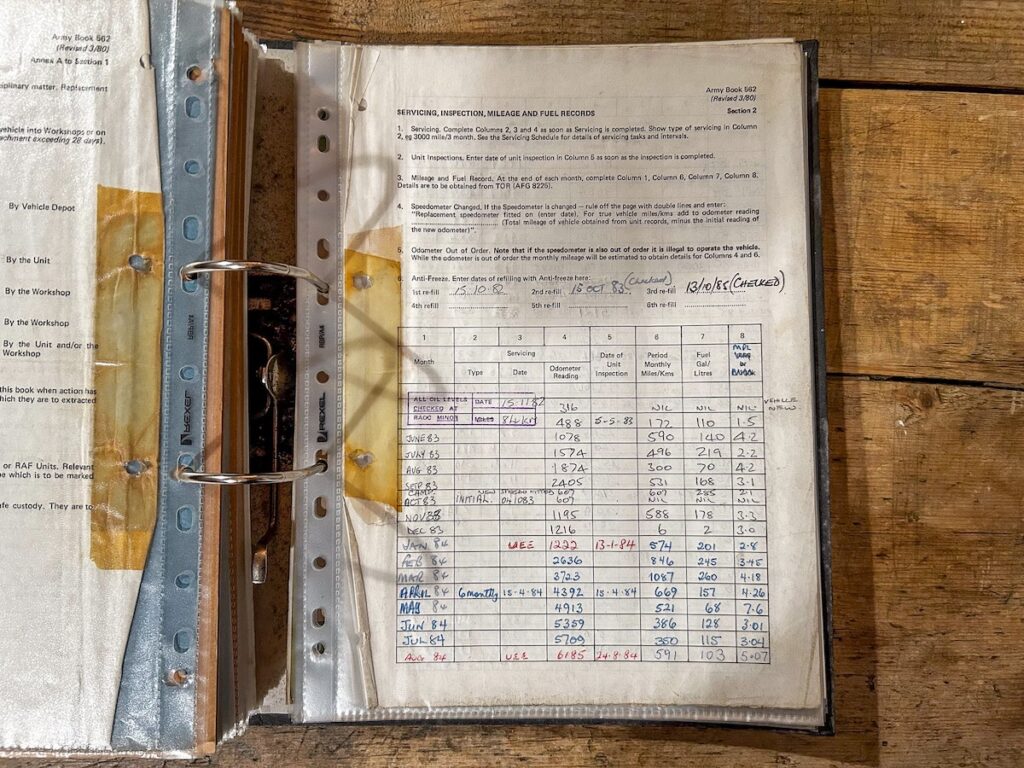 Army Book 562
(Revised 3/80)
Annex A to Section 1
ciplinary matter. Replacement
vehicle into Workshops or on
achment exceeding 28 days).
By Vehicle Depot
By the Unit
By the Workshop
By the Workshop
By the Unit and/or the
Workshop
this book when action has
which they are to extracted
or RAF Units. Relevant
be which is to be marked
afe custody. They are to
REXEL
REXEL
Army Book 562
(Revised 3/80)
Section 2
SERVICING, INSPECTION, MILEAGE AND FUEL RECORDS
1. Servicing. Complete Columns 2, 3 and 4 as soon as Servicing is completed. Show type of servicing in Column
2, eg 3000 mile/3 month. See the Servicing Schedule for details of servicing tasks and intervals.
2. Unit Inspections. Enter date of unit inspection in Column 5 as soon as the inspection is completed.
3. Mileage and Fuel Record. At the end of each month, complete Column 1, Column 6, Column 7, Column 8.
Details are to be obtained from TOR (AFG 8225).
4. Speedometer Changed. If the Speedometer is changed — rule off the page with double lines and enter:
"Replacement speedometer fitted on (enter date). For true vehicle miles/kms add to odometer reading
.................... (Total mileage of vehicle obtained from unit records, minus the initial reading of
the new odometer)".
5. Odometer Out of Order. Note that if the speedometer is also out of order it is illegal to operate the vehicle.
While the odometer is out of order the monthly mileage will be estimated to obtain details for Columns 4 and 6.
6. Anti-Freeze. Enter dates of refilling with Anti-freeze here:
1st re-fill 15.10.82 2nd re-fill 15 OCT 83 (Checked) 3rd re-fill 13/10/85 (CHECKED)
4th refill 5th re-fill 6th re-fill
1 2 3 4 5 6 7 8
Month Servicing Type Date Odometer Reading Date of Unit Inspection Period Monthly Miles/Kms Fuel Gal/ Litres
ALL OIL LEVELS CHECKED AT RAOC MINOR DATE 15.11.82 84 km
316 NIL NIL NIL VEHICLE NEW
488 5-5-83 172 110 1.5
JUNE 83 1078 590 140 4.2
JULY 83 1574 496 219 2.2
AUG 83 1874 300 70 4.2
SEP 83 2405 531 168 3.1
CAMP NEW SPEEDO FITTED 607 607 285 2.1
OCT 83 INITIAL. 041083 607 NIL NIL NIL
NOV 83 1195 588 178 3.3
DEC 83 1216 6 2 3.0
JAN 84 UEE 1222 13-1-84 574 201 2.8
FEB 84 2636 846 245 3.45
MAR 84 3723 1087 260 4.18
APRIL 84 6 monthly 15-4-84 4392 15-4-84 669 157 4.26
MAY 84 4913 521 68 7.6
JUN 84 5359 386 128 3.01
JUL 84 5709 350 115 3.04
AUG 84 UEE 6185 24-8-84 591 103 5.07